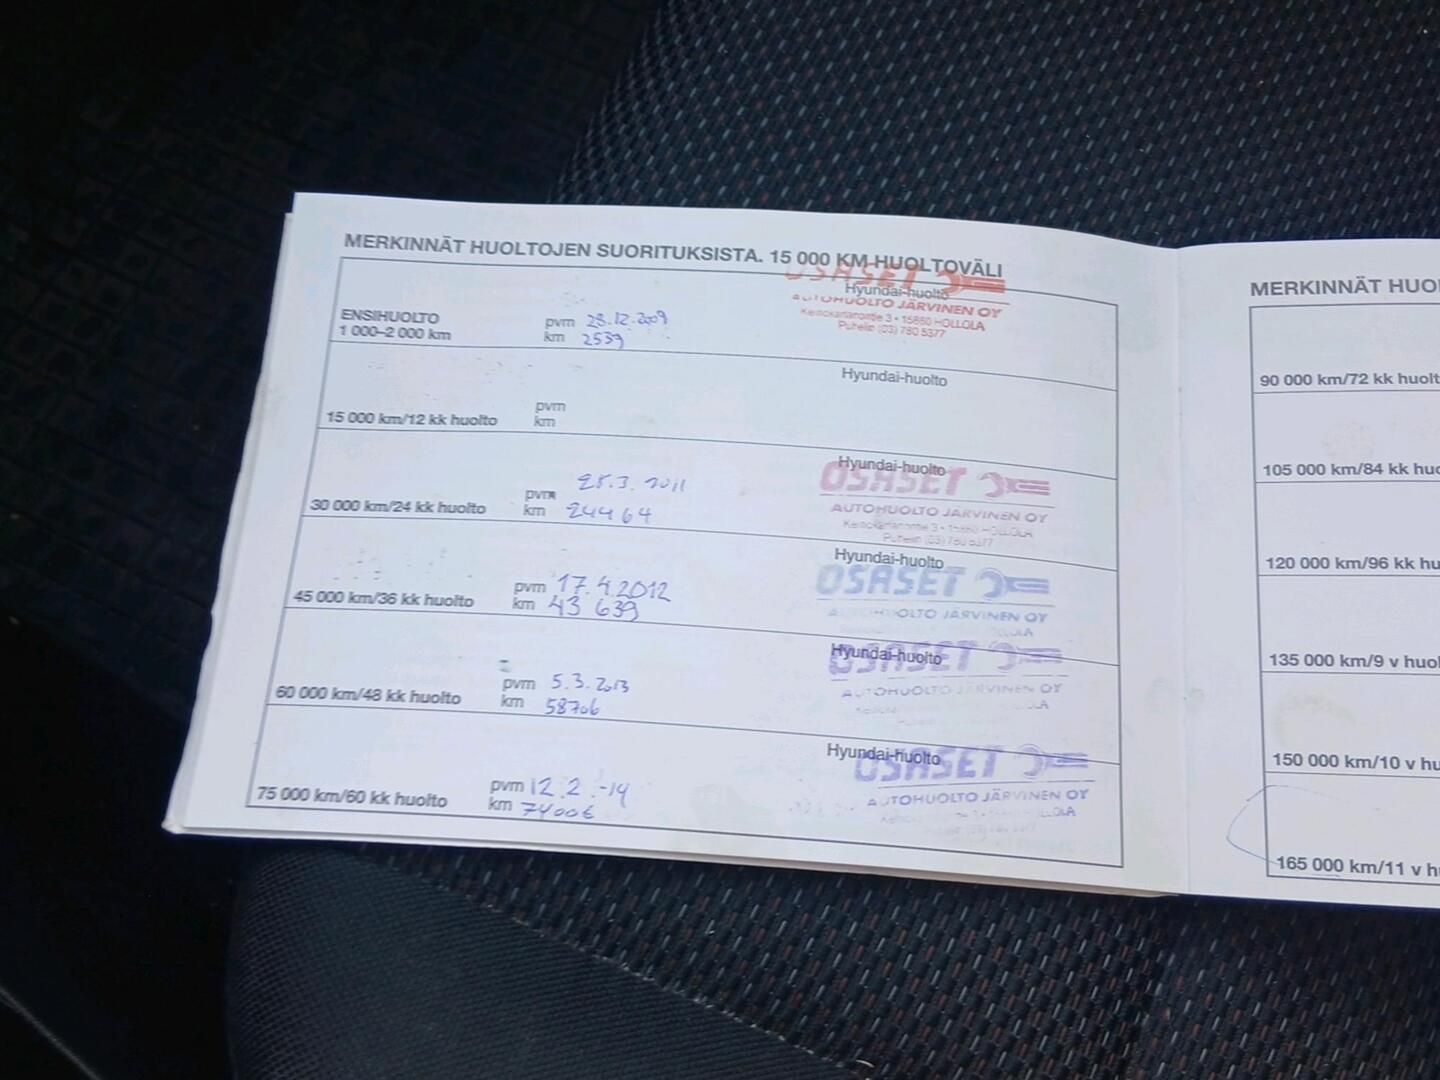 MERKINNÄT HUOLTOJEN SUORITUKSISTA. 15 000 KM HUOLTOVÄLI
OSASET
Hyundai-huolto
AUTOHUOLTO JÄRVINEN OY
Keinokaranontie 3 • 15860 HOLLOLA
Puhelin (03) 780 5377
ENSIHUOLTO
1 000–2 000 km
pvm 23.12.2009
km 2539
Hyundai-huolto
15 000 km/12 kk huolto
pvm
km
Hyundai-huolto
OSASET
AUTOHUOLTO JÄRVINEN OY
HOLLOLA
Puhelin (03) 780 5377
30 000 km/24 kk huolto
pvm 25.3.2011
km 24464
Hyundai-huolto
OSASET
AUTOHUOLTO JÄRVINEN OY
45 000 km/36 kk huolto
pvm 17.4.2012
km 43 639
Hyundai-huolto
OSASET
AUTOHUOLTO JÄRVINEN OY
60 000 km/48 kk huolto
pvm 5.3.2013
km 58706
Hyundai-huolto
OSASET
AUTOHUOLTO JÄRVINEN OY
HOLLOLA
75 000 km/60 kk huolto
pvm 12.2.-14
km
MERKINNÄT HUO
90 000 km/72 kk huolt
105 000 km/84 kk huo
120 000 km/96 kk hu
135 000 km/9 v huol
150 000 km/10 v hu
165 000 km/11 v hu